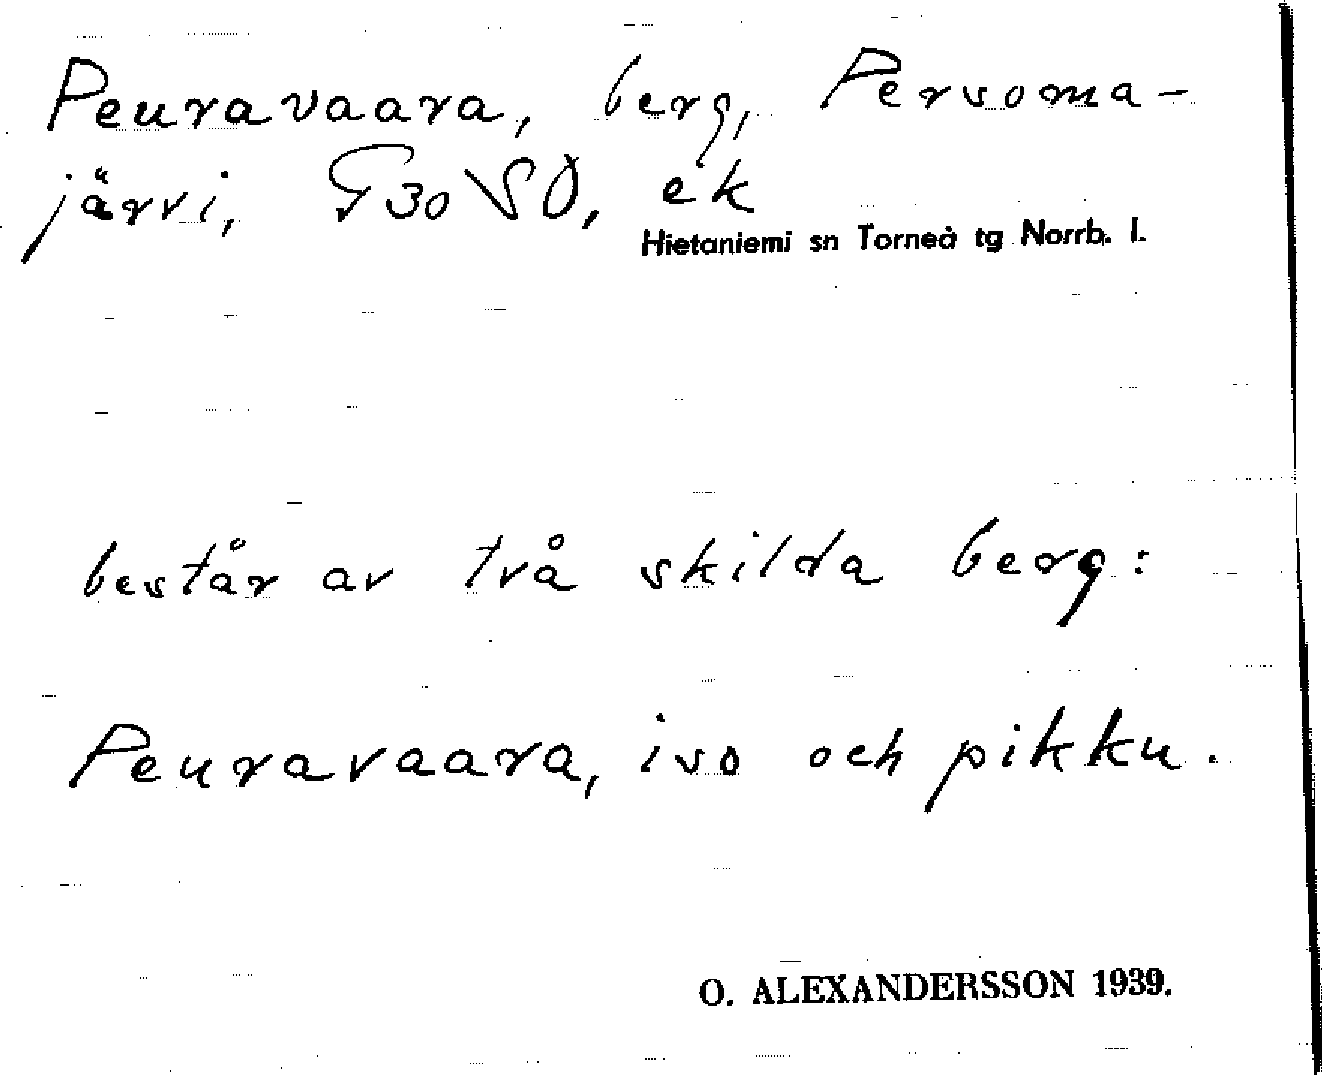 Peuravaara, berg, Persoma-
järvi, G30SO, ek
Hietaniemi sn Torneå tg Norrb. l.
består av två skilda berg:
Peuravaara, iso och pikku.
O. ALEXANDERSSON 1939.